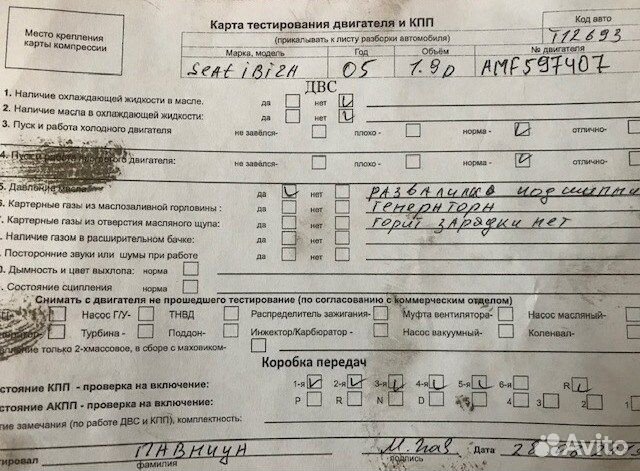 Место крепления карты компрессии
Карта тестирования двигателя и КПП
(прикалывать к листу разборки автомобиля)
Код авто
T12693
Марка, модель Год Объём № двигателя
Seat iBiZA 05 1.9D AMF597407
ДВС
1. Наличие охлаждающей жидкости в масле. да нет
2. Наличие масла в охлаждающей жидкости: да нет
3. Пуск и работа холодного двигателя не завелся- плохо - норма - отлично-
4. Пуск и работа двигателя: не завелся- плохо - норма - отлично-
5. Давление масла да нет РАЗВАЛИЛИСЬ
6. Картерные газы из маслозаливной горловины : да нет ГЕНЕРАТОРА
. Картерные газы из отверстия масляного щупа: да нет ГОРИТ ЗАРЯДКИ НЕТ
. Наличие газом в расширительном бачке: да нет
. Посторонние звуки или шумы при работе да нет
. Дымность и цвет выхлопа: норма
. Состояние сцепления норма
Снимать с двигателя не прошедшего тестирование (по согласованию с коммерческим отделом)
Насос Г/У- ТНВД Распределитель зажигания- Муфта вентилятора- Насос масляный-
Турбина - Поддон- Инжектор/Карбюратор - Насос вакуумный- Коленвал-
только 2-хмассовое, в сборе с маховиком-
Коробка передач
стояние КПП - проверка на включение: 1-я 2-я 3-я 4-я 5-я 6-я R
стояние АКПП - проверка на включение: P R N D 5 4 3 2
гие замечания (по работе ДВС и КПП), комплектность:
тировал фамилия подпись Дата 28
Avito